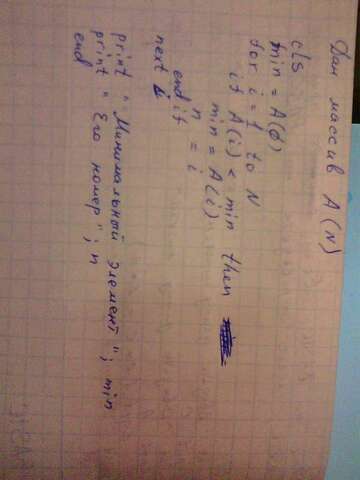 Дан массив A(N)
cls
min = A(ø)
for i = 1 to N
if A(i) < min then
min = A(i)
n = i
end if
next i
print "Минимальный элемент"; min
print "Его номер"; n
end